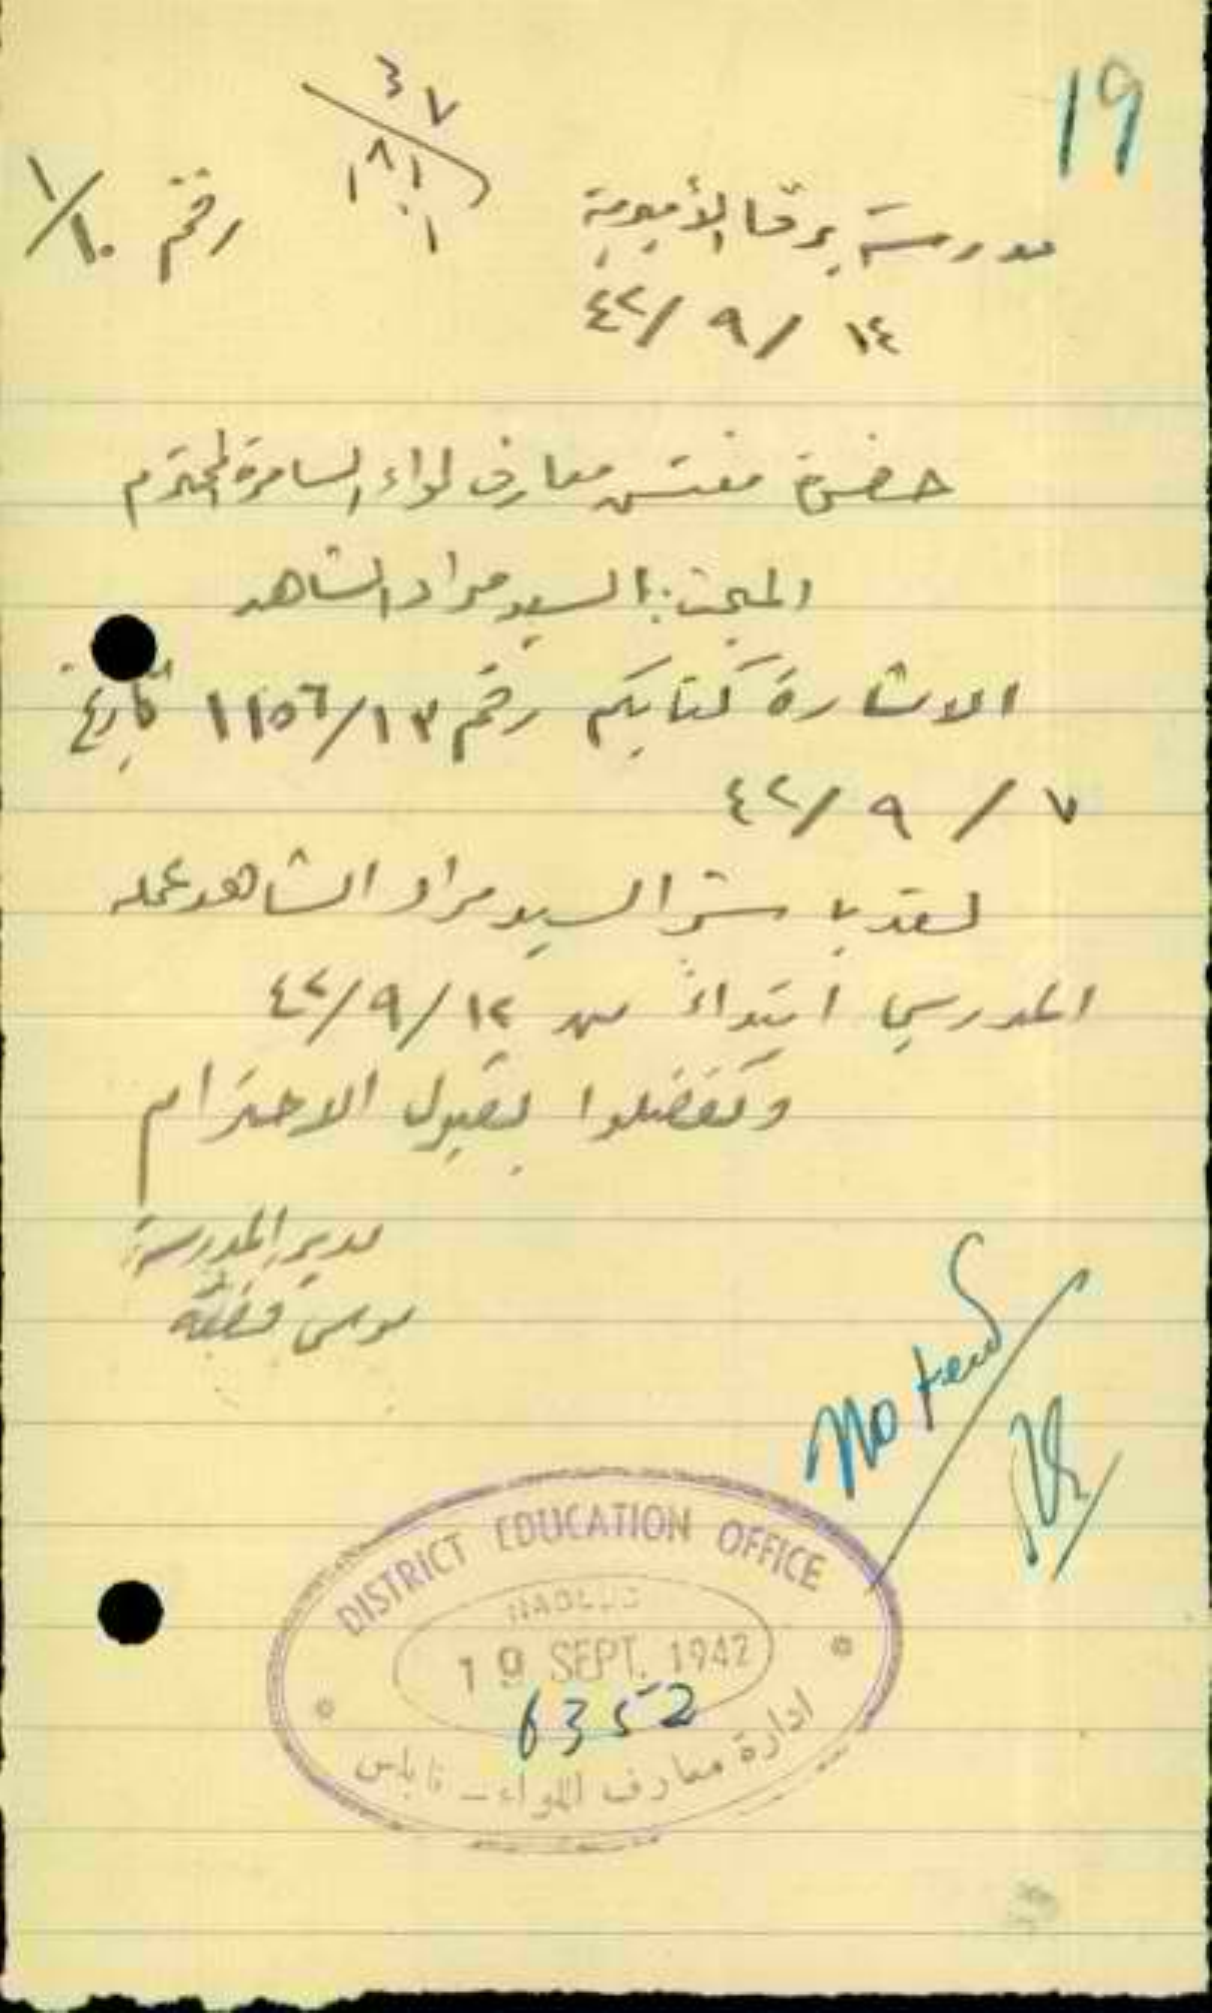 19
٣٧
١٨١
١
مدرسة برقا الأميرية
رقم ١/١٠
١٤ / ٩ / ٤٢
حضرة مفتش معارف لواء السامرة المحترم
المبحث: السيد مراد الشاهد
الاشارة كتابكم رقم ١١٥٦/١٣ تاريخ
٧ / ٩ / ٤٢
لقد باشر السيد مراد الشاهد عمله
المدرسي ابتداءً من ١٢/٩/٤٢
وتفضلوا بقبول الاحترام
مدير المدرسة
موسى
Noted
DISTRICT EDUCATION OFFICE
NABLUS
19 SEPT. 1942
6352
ادارة معارف اللواء - نابلس